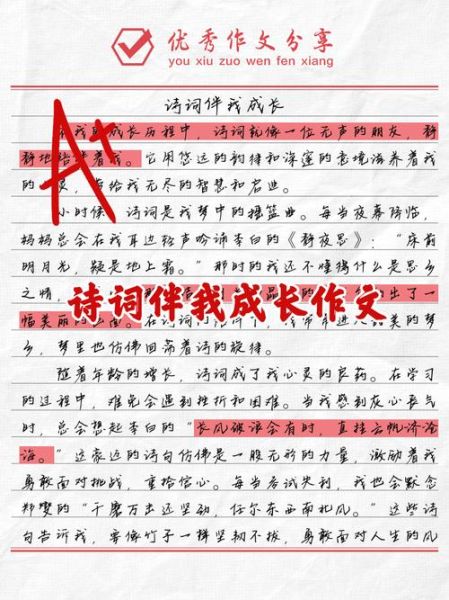 优秀作文分享
you xiu zuo wen fen xiang
诗词伴我成长
我的成长历程中，诗词就像一位无声的朋友，静
静地陪伴着我。它用悠远的韵律和深邃的意境滋养着我
的 灵，带给我无尽的智慧和启迪。
小时候，诗词是我梦中的摇篮曲。每当夜幕降临，
妈妈总会在我耳边轻声吟诵李白的《静夜思》：“床前
明月光，疑是地上霜。”那时的我还不懂得什么是思乡
之情，
出了一
诗词伴我成长作文
幅美丽的
在诗词的
的梦
乡，梦里也仿佛回荡着诗的旋律。
随着年龄的增长，诗词成了我心灵的良药。在学习
的过程中，难免会遇到挫折和困难。当我感到灰心丧气
时，总会想起李白的“长风破浪会有时，直挂云帆济沧
海。”这豪远的诗句仿佛是一股无形的力量，激励着我
勇敢面对挑战，重拾信心。每当考试失利，我也会默念
郑燮的“千磨万击还坚劲，任尔东西南北风。”这些诗
句告诉我，要像竹子一样坚韧不拔，勇敢面对人生的风
A+